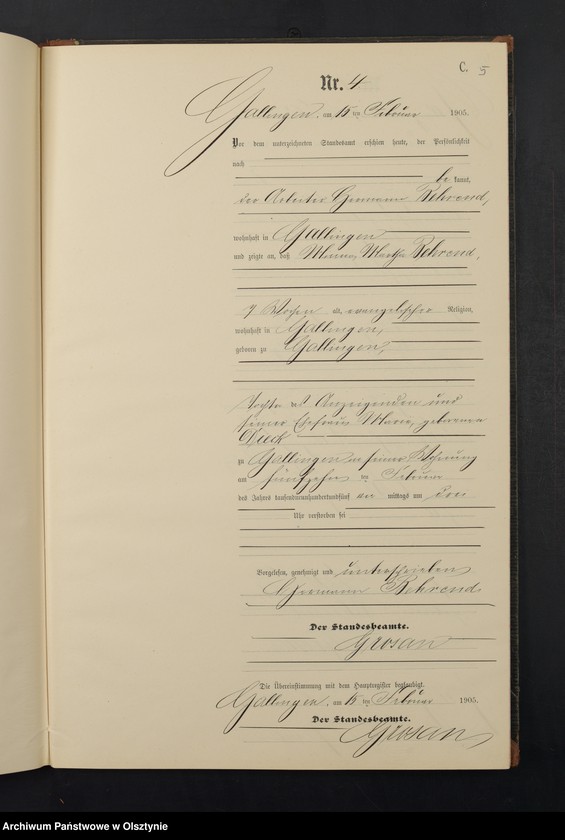 C. 5
Nr. 4
Gallingen, am 15 ten Februar 1905.
Vor dem unterzeichneten Standesbeamten erschien heute, der Persönlichkeit
nach
be kannt,
der Arbeiter Hermann Behrend,
wohnhaft in Gallingen
und zeigte an, daß Minna Martha Behrend,
7 Wochen alt, evangelischer Religion,
wohnhaft in Gallingen,
geboren zu Gallingen,
Tochter des Anzeigenden und
seiner Ehefrau Marie, geborenen
zu Gallingen in seiner Wohnung
am fünfzehn ten Februar
des Jahres tausendneunhundertundfünf mittags um drei
Uhr verstorben sei
Vorgelesen, genehmigt und unterschrieben
Hermann Behrend
Der Standesbeamte.
Grosan
Die Übereinstimmung mit dem Hauptregister beglaubigt.
Gallingen, am 15 ten Februar 1905.
Der Standesbeamte.
Grosan
Archiwum Państwowe w Olsztynie